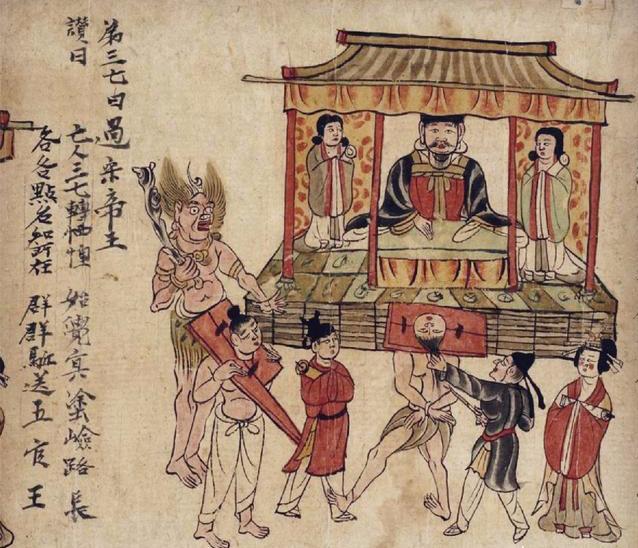 第三七日過宋帝王
讚曰
亡人三七轉恓惶 始覺冥塗嶮路長
各各點名知所在 群群駈送五官王